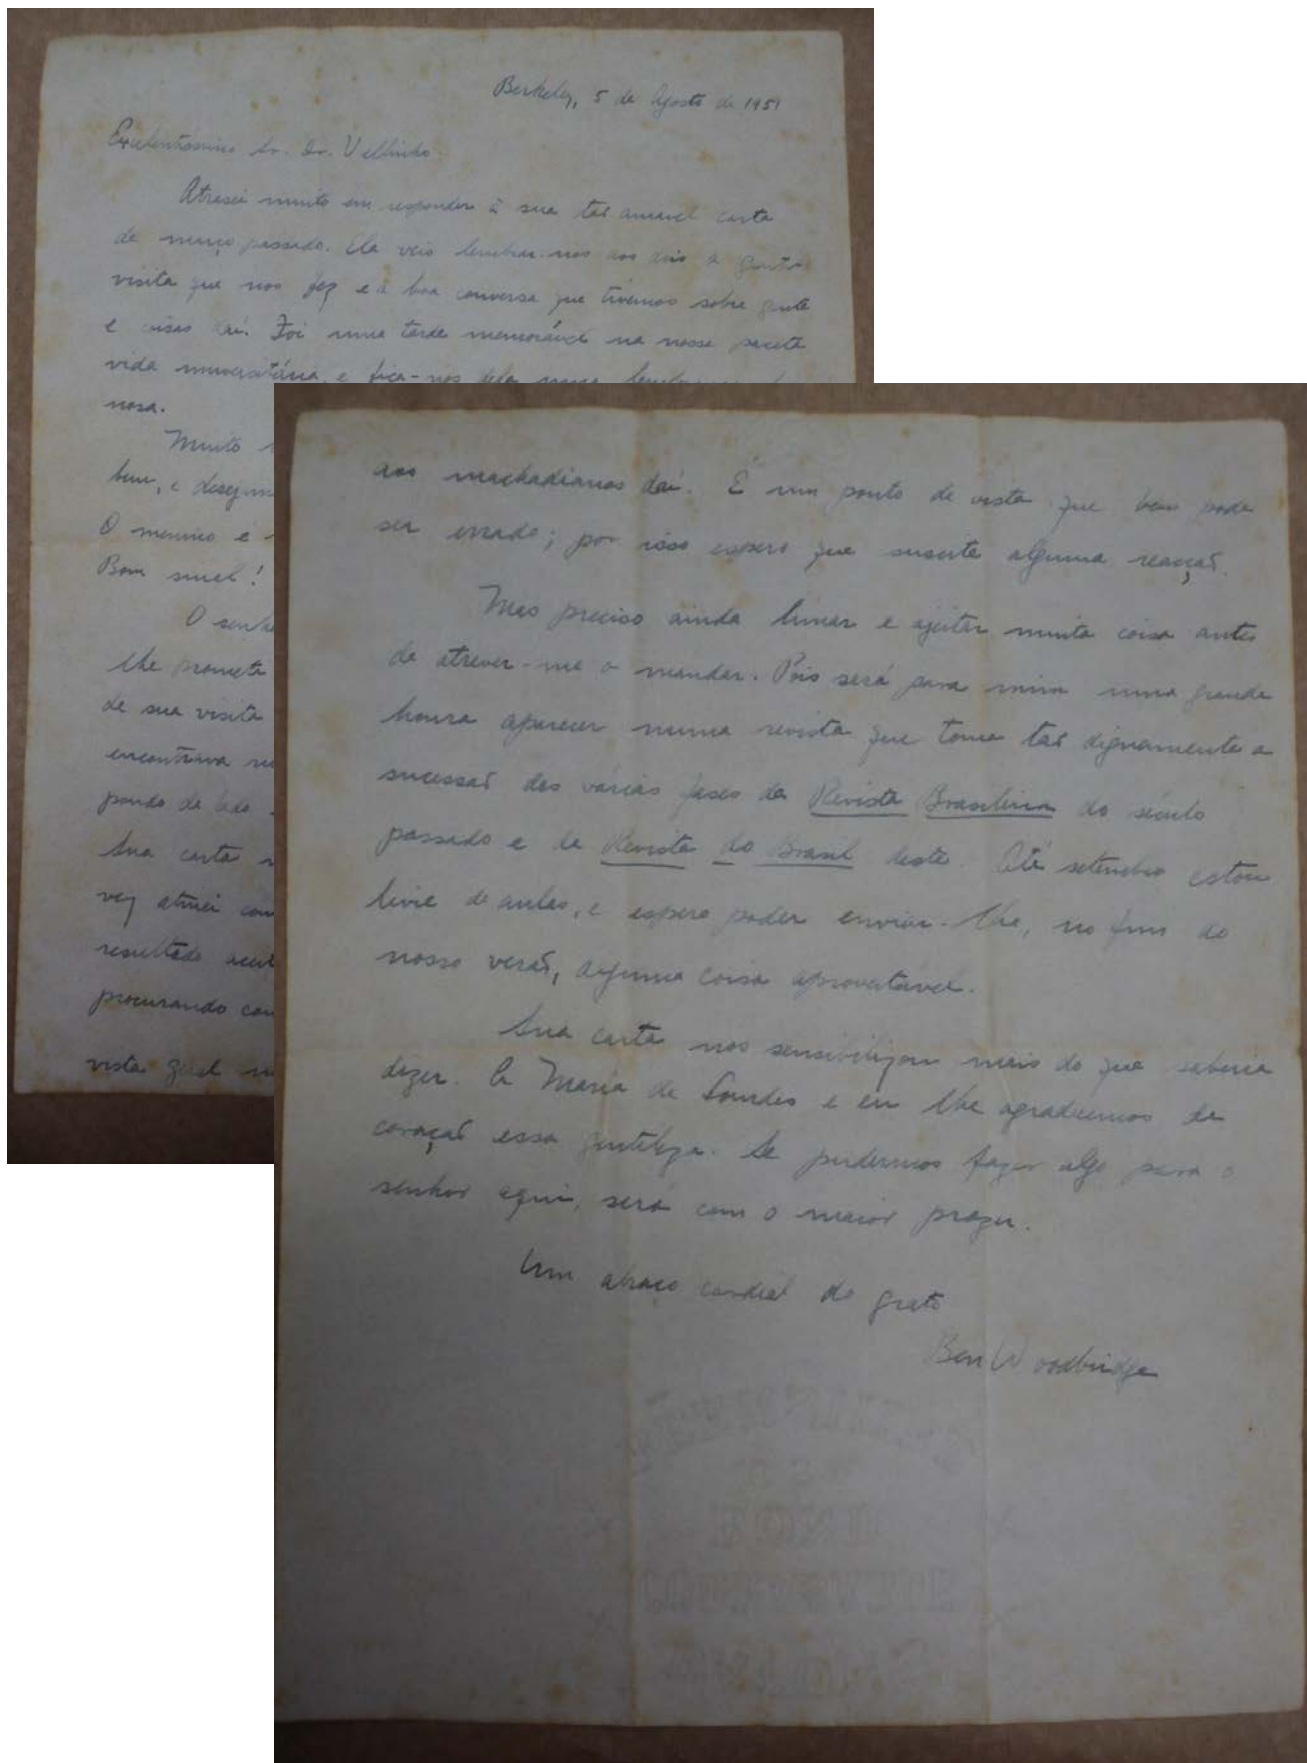 Berkeley, 5 de Agosto de 1951
Excelentíssimo Sr. Dr. Vellinho
Atrasei muito em responder à sua tão amavel carta
de março passado. Ela veio lembrar-nos aos dois a grata
visita que nos fez e a boa conversa que tivemos sobre gente
e coisas daí. Foi uma tarde memorável na nossa pacata
vida universitária, e fica-nos dela uma
nosa.
Muito
bem, e desejam
O menino é
Bom sinal!
O senho
lhe prometi
de sua visita
encontrava
pondo de lado
Sua carta
vez atinei com
resultado aceit
procurando
vista geral
aos machadianos daí. É um ponto de vista que bem pode
ser errado; por isso espero que suscite alguma reacção.
Mas preciso ainda limar e ajeitar muita coisa antes
de atrever-me a mandar. Pois será para mim uma grande
honra aparecer numa revista que toma tão dignamente a
sucessão das várias fases da Revista Brasileira do século
passado e da Revista do Brasil deste. Até setembro estou
livre de aulas, e espero poder enviar-lhe, no fim do
nosso verão, alguma coisa aproveitável.
Sua carta nos sensibilizou mais do que saberia
dizer. A Maria de Lourdes e eu lhe agradecemos de
coração essa gentileza. Se pudermos fazer algo para o
senhor aqui, será com o maior prazer.
Um abraço cordial do grato
Ben Woodbridge